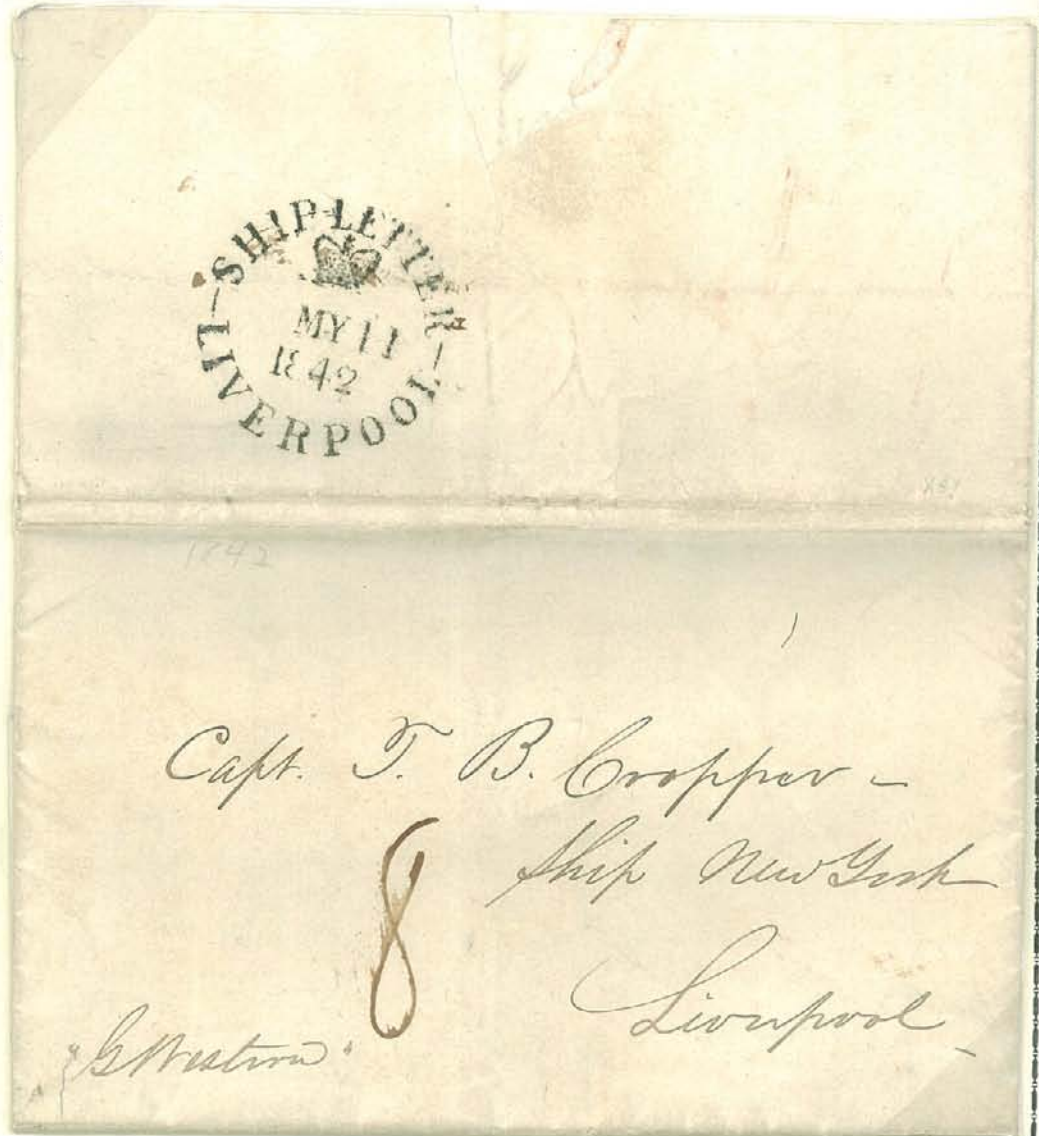 SHIP-LETTER
MY 11
1842
LIVERPOOL
1842
Capt. T. B. Cropper -
Ship New York
8
Liverpool
"G Western"